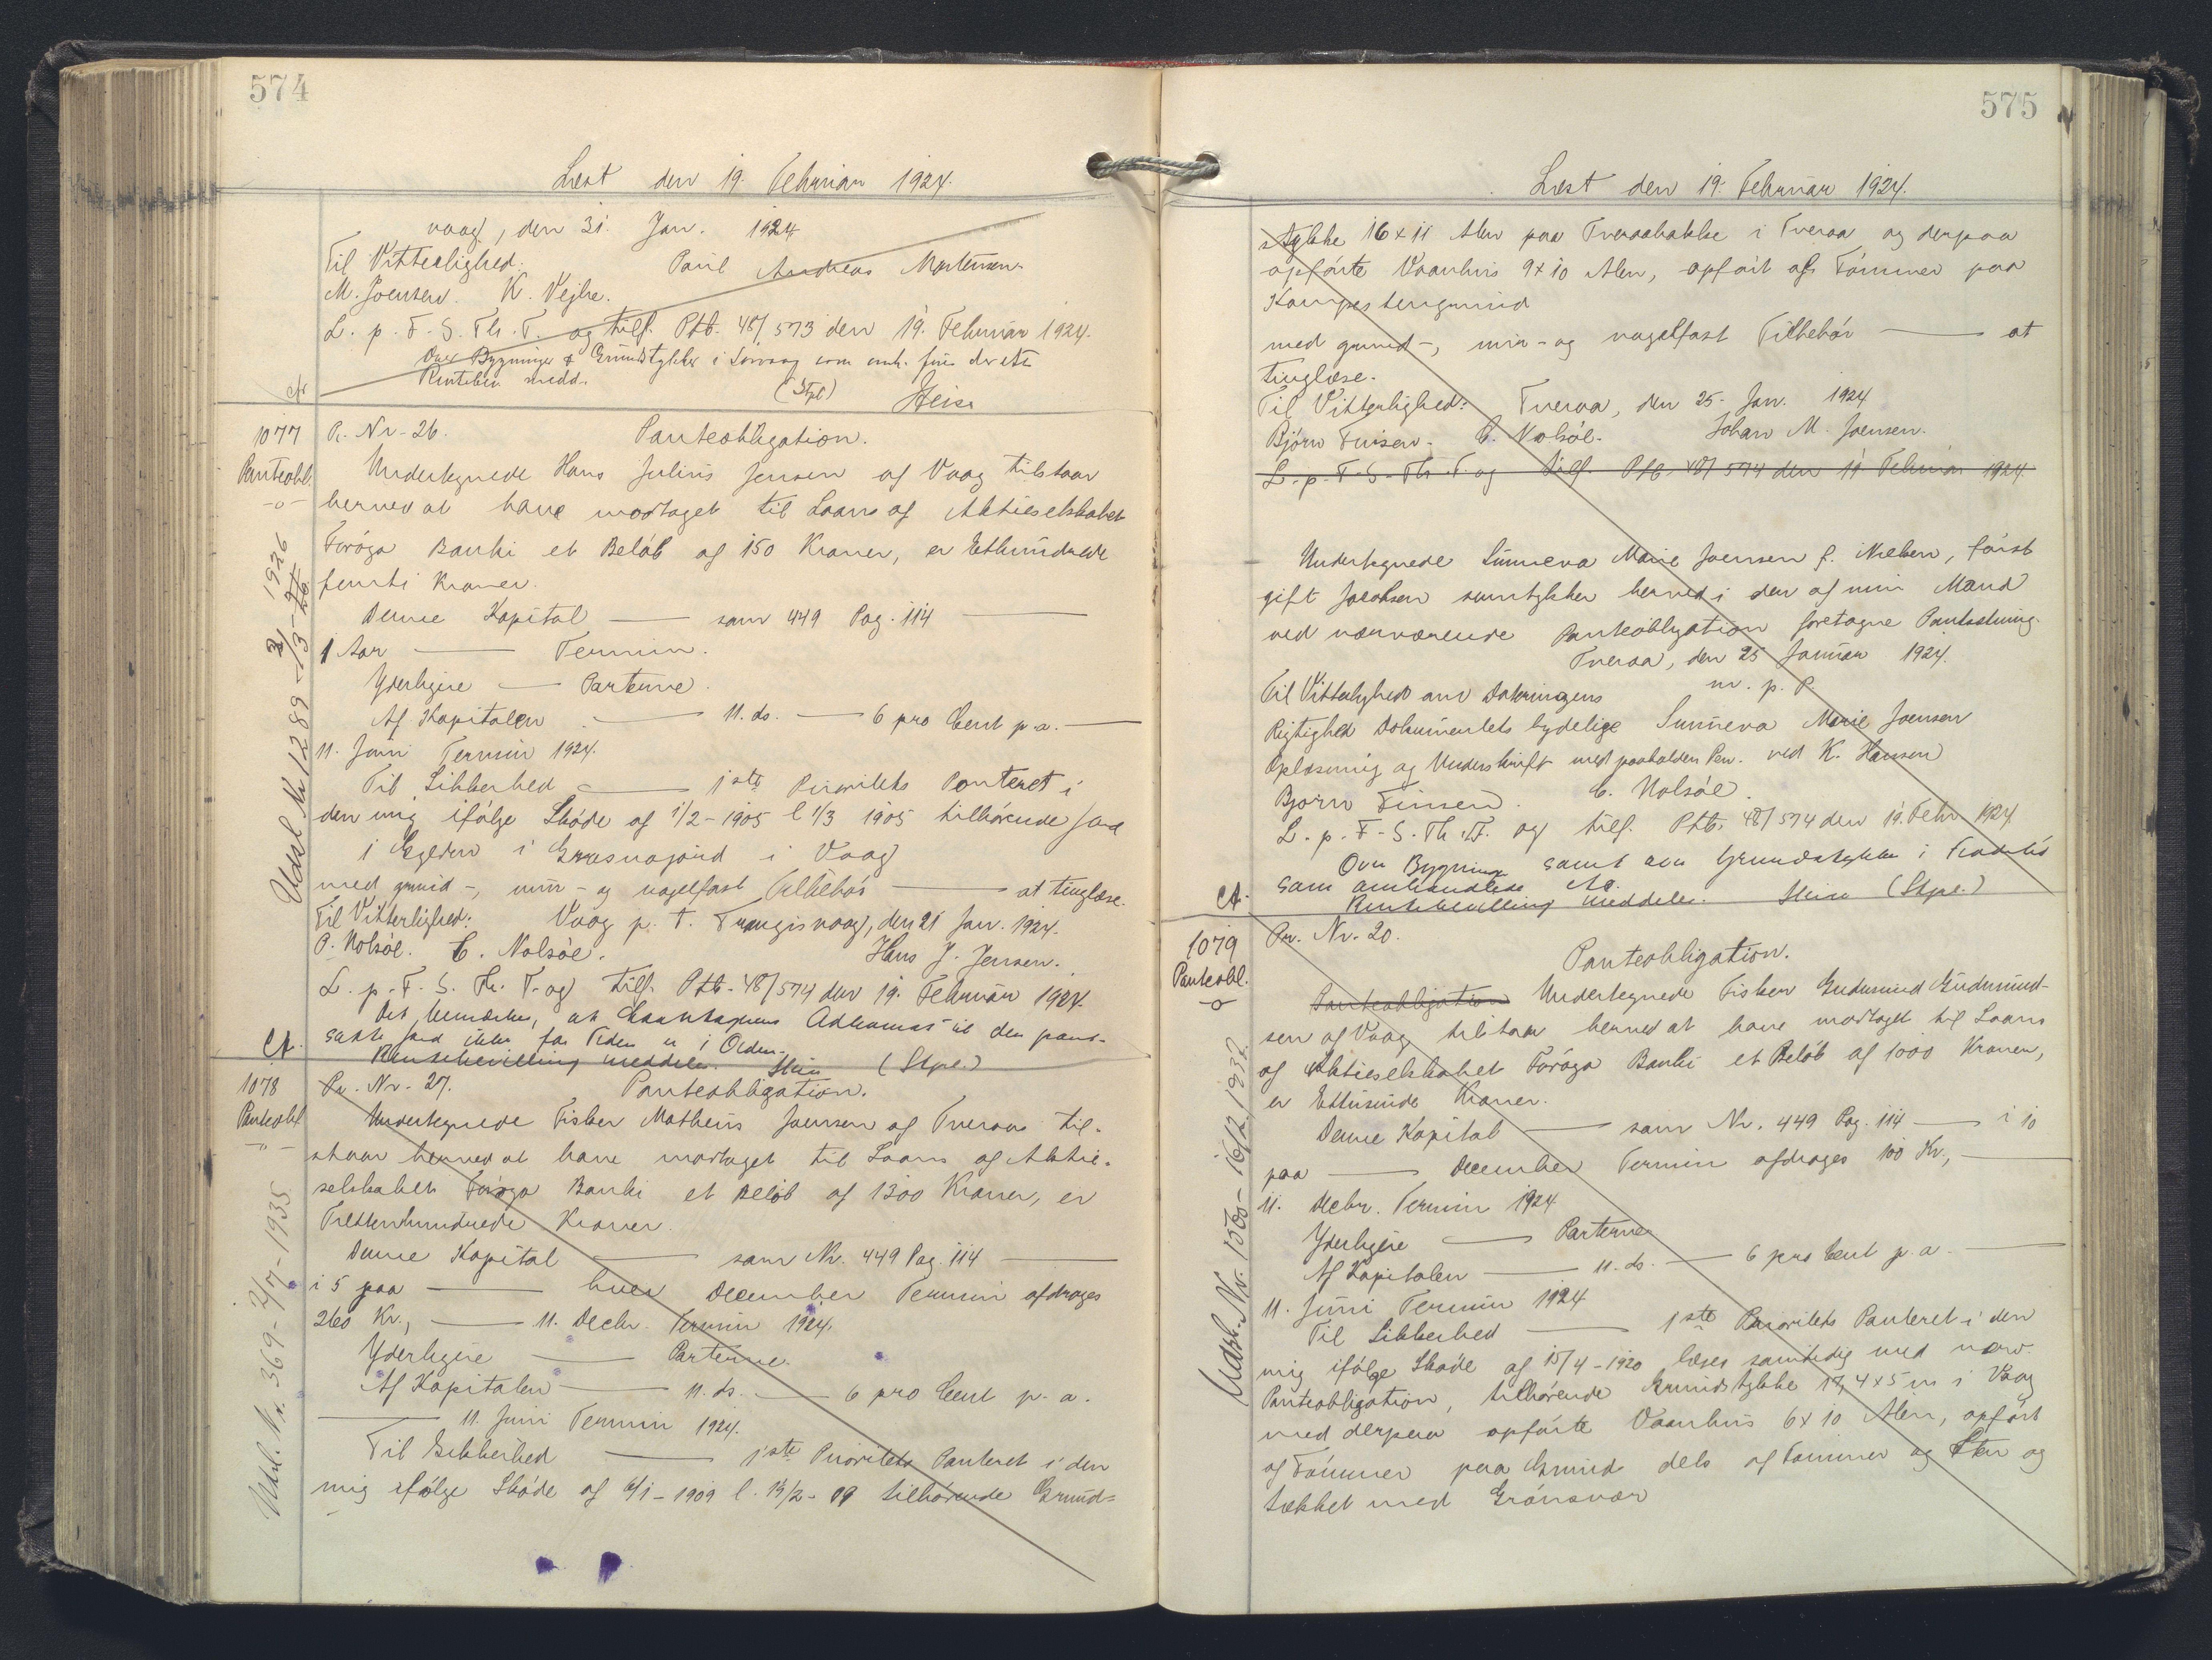 574
Læst den 19. Februar 1924.
vaag, den 31. Jan. 1924
Til Vitterlighed. Paul Andreas Mortensen.
M. Joensen. K. Vejhe.
L. p. F. S. Th. T. og tilf. Ptb. 48/573 den 19. Februar 1924.
Over Bygninger & Grundstykker i Sørvaag som
medd. (Stpl)
Ct.
1077 Pr. Nr. 26. Panteobligation.
Panteobl. Undertegnede Hans Julius Jensen af Vaag tilstaar
herved at have modtaget til Laans af Aktieselskabet
Føroya Banki et Beløb af 150 Kroner, er Ethundrede
femti Kroner.
Denne Kapital — som 449 Pag. 114 —
1 Aar — Termin.
Yderligere — Parterne.
Af Kapitalen — 11. ds. — 6 pro Cent p. a. —
11. Juni Termin 1924.
Til Sikkerhed — 1ste Prioritets Panteret i
den mig ifølge Skøde af 1/2-1905 l 1/3 1905 tilhørende Jord
i i Vaag
med grund-, mur- og nagelfast Tilbehør — at tinglæse.
Til Vitterlighed: Vaag p. t. Trangisvaag, den 21 Jan. 1924.
P. Nolsøe. C. Nolsøe. Hans J. Jensen.
L. p. F. S. Th. T. og tilf. Ptb. 48/574 den 19. Februar 1924.
Det bemærkes, at Laantagerens Adkomst til den pant-
satte Jord ikke for Tiden er i Orden.
Ct. Rentebevilling meddeles. (Stpl.)
Udsl. Nr 1289 1926
1078 Pr. Nr. 27. Panteobligation.
Panteobl. Undertegnede Fisker Matheus Joensen af Tveraa til-
staar herved at have modtaget til Laans af Aktie-
selskabet Føroya Banki et Beløb af 1300 Kroner, er
Trettenhundrede Kroner.
Denne Kapital — som Nr. 449 Pag. 114 —
i 5 paa — hver December Termin afdrages
260 Kr., — 11. Decbr. Termin 1924.
Yderligere — Parterne.
Af Kapitalen — 11. ds. — 6 pro Cent p. a.
— 11. Juni Termin 1924.
Til Sikkerhed — 1ste Prioritets Panteret i den
mig ifølge Skøde af 6/1-1909 l. 19/2-09 tilhørende Grund-
Udsl. Nr. 369- 2/7-1935
575
Læst den 19. Februar 1924.
stykke 16 x 11 Alen paa Tveraabakke i Tveraa og derpaa
opførte Vaanhus 9 x 10 Alen, opført af Tømmer paa
Kampestengrund
med grund-, mur- og nagelfast Tilbehør — at
tinglæse.
Til Vitterlighed: Tveraa, den 25. Jan. 1924
Bjørn Finsen. C. Nolsøe. Johan M. Joensen.
L. p. F. S. Th. T. og tilf. Ptb. 48/574 den 19 Februar 1924.
Undertegnede Sunneva Marie Joensen f. Nielsen, først
gift Jacobsen samtykker herved i den af min Mand
ved nærværende Panteobligation foretagne Pantsætning.
Tveraa, den 25 Januar 1924.
Til Vitterlighed om Dateringens m. p. P.
Rigtighed Dokumentets tydelige Sunneva Marie Joensen
Oplæsning og Underskrift med paaholden Pen. ved K. Hansen
Bjørn Finsen. C. Nolsøe.
L. p. F. S. Th. T. og tilf. Ptb. 48/574 den 19. Febr 1924
Over Bygninger samt over Grundstykke i
som omhandles
Ct. Rentebevilling meddeles. (Stpl.)
1079 Pr. Nr. 20.
Panteobl. Panteobligation.
Panteobligation Undertegnede Fisker Gudmund Gudmund-
sen af Vaag tilstaar herved at have modtaget til Laans
af Aktieselskabet Føroya Banki et Beløb af 1000 Kroner,
er Ettusinde Kroner.
Denne Kapital — som Nr. 449 Pag. 114 — i 10
paa — December Termin afdrages 100 Kr., —
11. Decbr. Termin 1924
Yderligere — Parterne
Af Kapitalen — 11. ds. — 6 pro Cent p. a. —
11. Juni Termin 1924
Til Sikkerhed — 1ste Prioritets Panteret i den
mig ifølge Skøde af 15/4-1920 læses samtidig med nærv.
Panteobligation, tilhørende Grundstykke 17,4 x 5 m i Vaag
med derpaa opførte Vaanhus 6 x 10 Alen, opført
af Tømmer paa Grund dels af Tømmer og Sten og
tækket med Grønsvær
Udsl. Nr. 1500- 16/2 1932